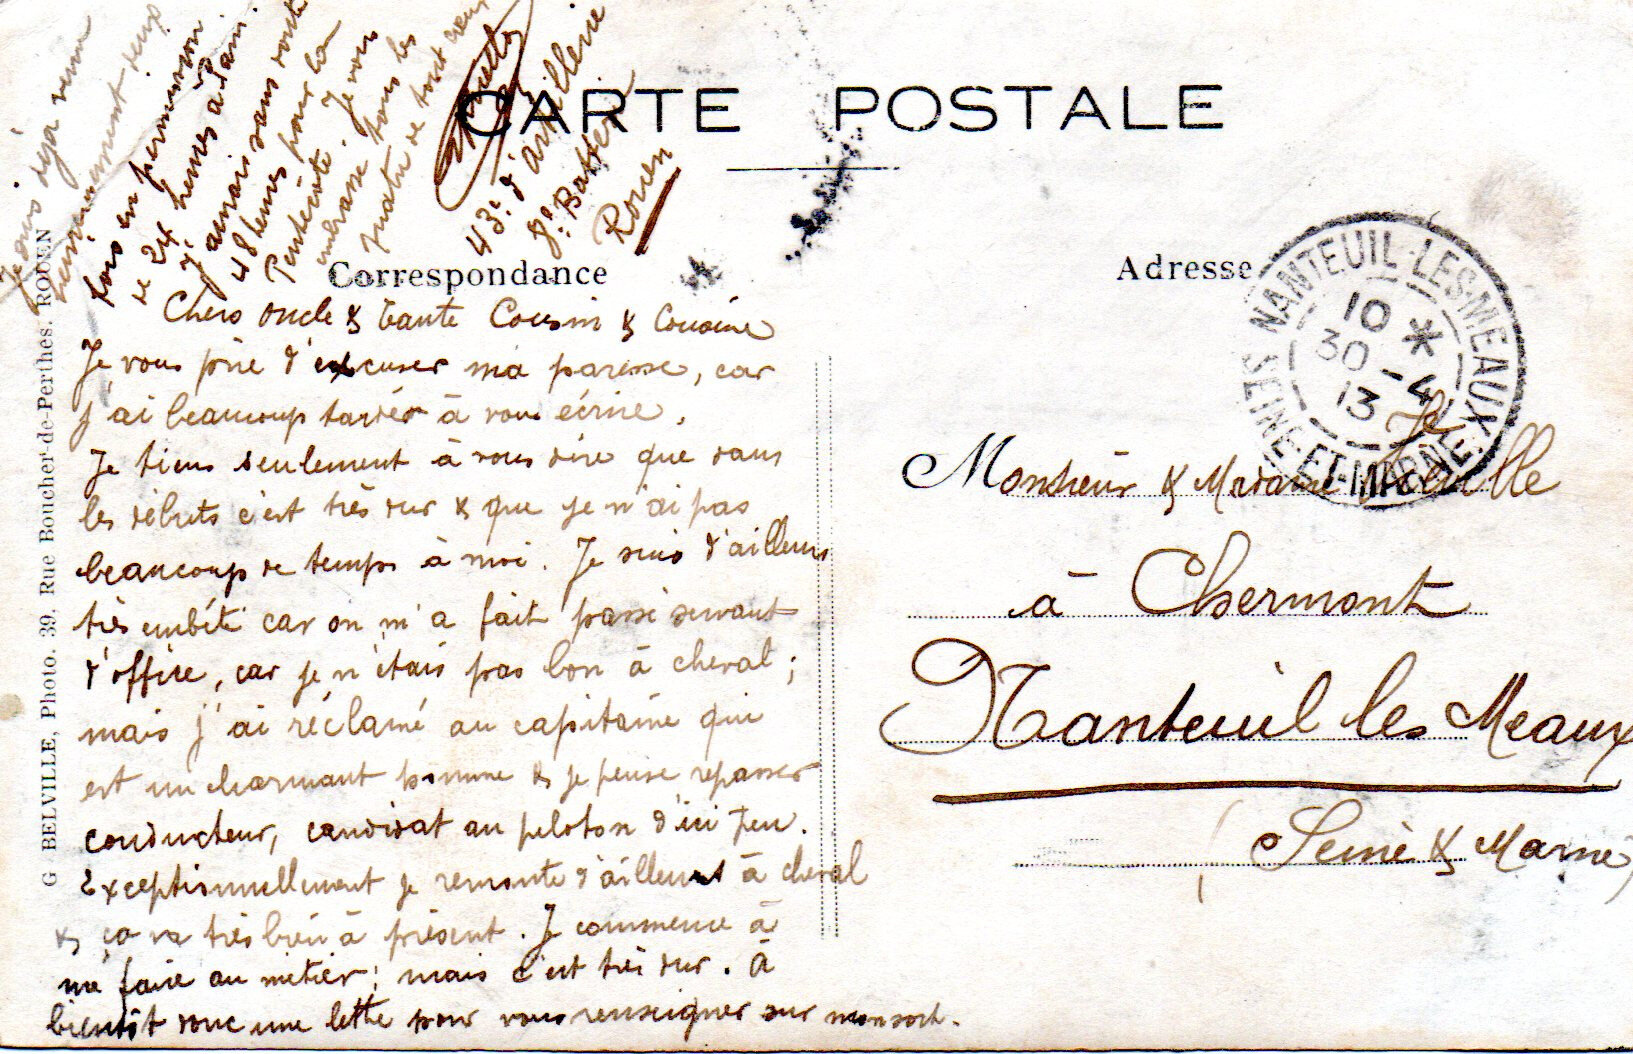 CARTE POSTALE
Correspondance
Adresse
Chers Oncle & Tante Cousin & Cousine
Je vous prie d'excuser ma paresse, car
j'ai beaucoup tarder à vous écrire.
Je tiens seulement à vous dire que dans
les débuts c'est très dur & que je n'ai pas
beaucoup de temps à moi. Je suis d'ailleurs
très embêté car on m'a fait passé servant
d'office, car je n'étais pas bon à cheval ;
mais j'ai réclamé au capitaine qui
est un charmant homme & je pense repasser
conducteur, candidat au peloton d'ici peu.
Exceptionnellement je remonte d'ailleurs à cheval
& ça va très bien à présent. Je commence à
me faire au métier ; mais c'est très dur. A
bientôt donc une lettre pour vous renseigner sur mon sort.
Je suis déjà venu
dernièrement deux
fois en permission
de 24 heures à Paris.
J'aurais sans doute
48 heures pour la
Pentecôte. Je vous
embrasse tous les
quatre de tout cœur
43e d'artillerie
Rouen
Monsieur & Madame
à Chermont
Nanteuil les Meaux
Seine & Marne
NANTEUIL-LES-MEAUX
SEINE-ET-MARNE
10 *
30 -4
13
G BELVILLE, Photo. 39, Rue Boucher-de-Perthes. ROUEN